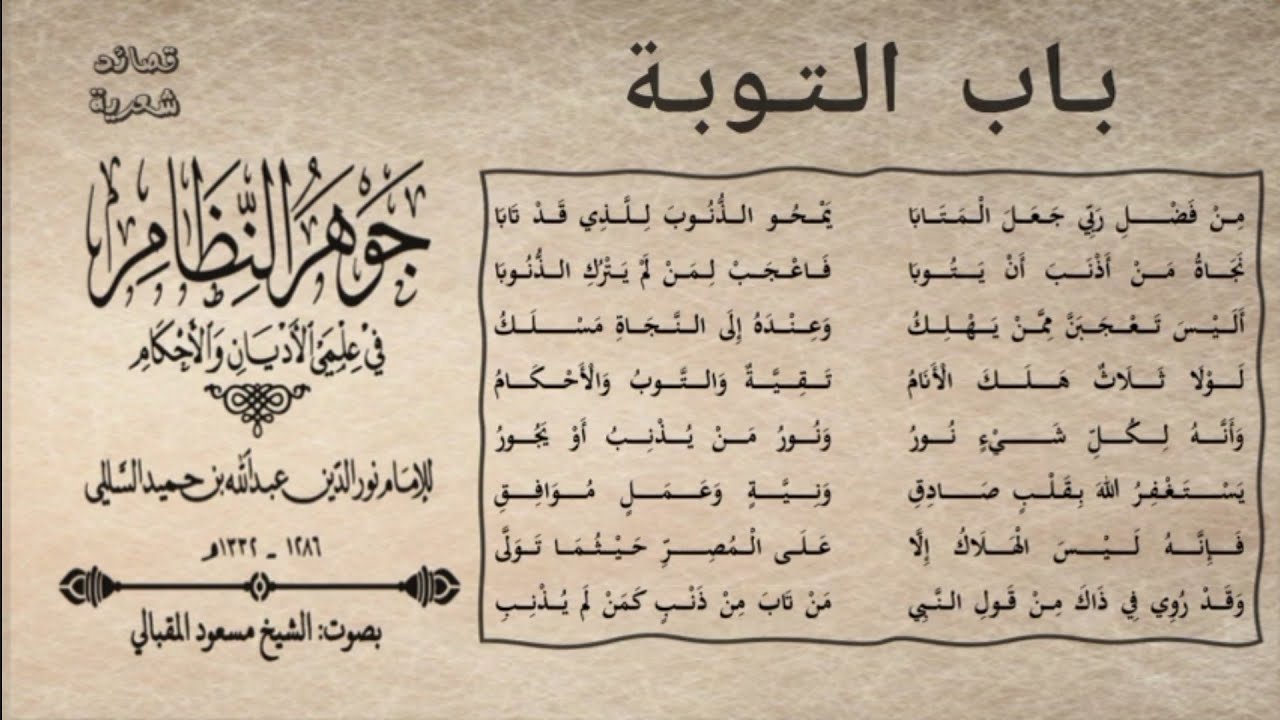 باب التوبة
مِنْ فَضْلِ رَبِّي جَعَلَ الْمَتَابَا يَمْحُو الذُّنُوبَ لِلَّذِي قَدْ تَابَا
نَجَاةُ مَنْ أَذْنَبَ أَنْ يَتُوبَا فَاعْجَبْ لِمَنْ لَمْ يَتْرُكِ الذُّنُوبَا
أَلَيْسَ تَعْجَبَنَّ مِمَّنْ يَهْلِكُ وَعِنْدَهُ إِلَى النَّجَاةِ مَسْلَكُ
لَوْلَا ثَلَاثٌ هَلَكَ الْأَنَامُ تَقِيَّةٌ وَالتَّوبُ وَالْأَحْكَامُ
وَأَنَّهُ لِكُلِّ شَيْءٍ نُورُ وَنُورُ مَنْ يُذْنِبُ أَوْ يَجُورُ
يَسْتَغْفِرُ اللهَ بِقَلْبٍ صَادِقِ وَنِيَّةٍ وَعَمَلٍ مُوَافِقِ
فَإِنَّهُ لَيْسَ الْهَلَاكُ إِلَّا عَلَى الْمُصِرِّ حَيْثُمَا تَوَلَّى
وَقَدْ رُوِي فِي ذَاكَ مِنْ قَولِ النَّبِي مَنْ تَابَ مِنْ ذَنْبٍ كَمَنْ لَمْ يُذْنِبِ
قصائد
شعرية
جَوْهَرُ النِّظَامِ
فِي عِلْمَيِ الْأَدْيَانِ وَالْأَحْكَامِ
للإمام نور الدين عبدالله بن حميد السالمي
١٢٨٦ - ١٣٣٢م
بصوت: الشيخ مسعود المقبالي